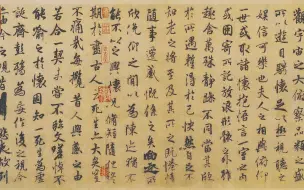 娛信可樂也夫人之相與俯仰
一世或取諸懷抱悟言一室之內
或因寄所託放浪形骸之外雖
趣舍萬殊靜躁不同當其欣
於所遇蹔得於己怏然自足不
知老之將至及其所之既惓情
隨事遷感慨係之矣向之所
欣俛仰之間以為陳迹猶不
能不以之興懷況脩短隨化終
期於盡古人云死生亦大矣豈
不痛哉每攬昔人興感之由
若合一契未嘗不臨文嗟悼不
能喻之於懷固知一死生為虛
誕齊彭殤為妄作後之視今